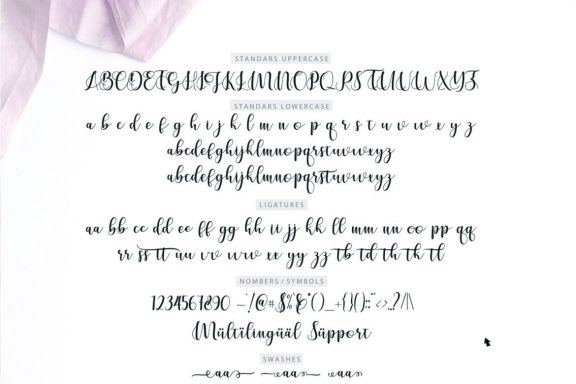 STANDARS UPPERCASE
ABCDEFGHIJKLMNOPQRSTUVWXYZ
STANDARS LOWERCASE
a b c d e f g h i j k l m n o p q r s t u v w x y z
abcdefghijklmnopqrstuvwxyz
abcdefghijklmnopqrstuvwxyz
LIGATURES
aa bb cc dd ee ff gg hh ii jj kk ll mm nn oo pp qq
rr ss tt uu vv ww xx yy zz tb td th tk tl
NOMBERS/SYMBOLS
1234567890
Mültilingüäl Süpport
SWASHES
eaa aaa aaa